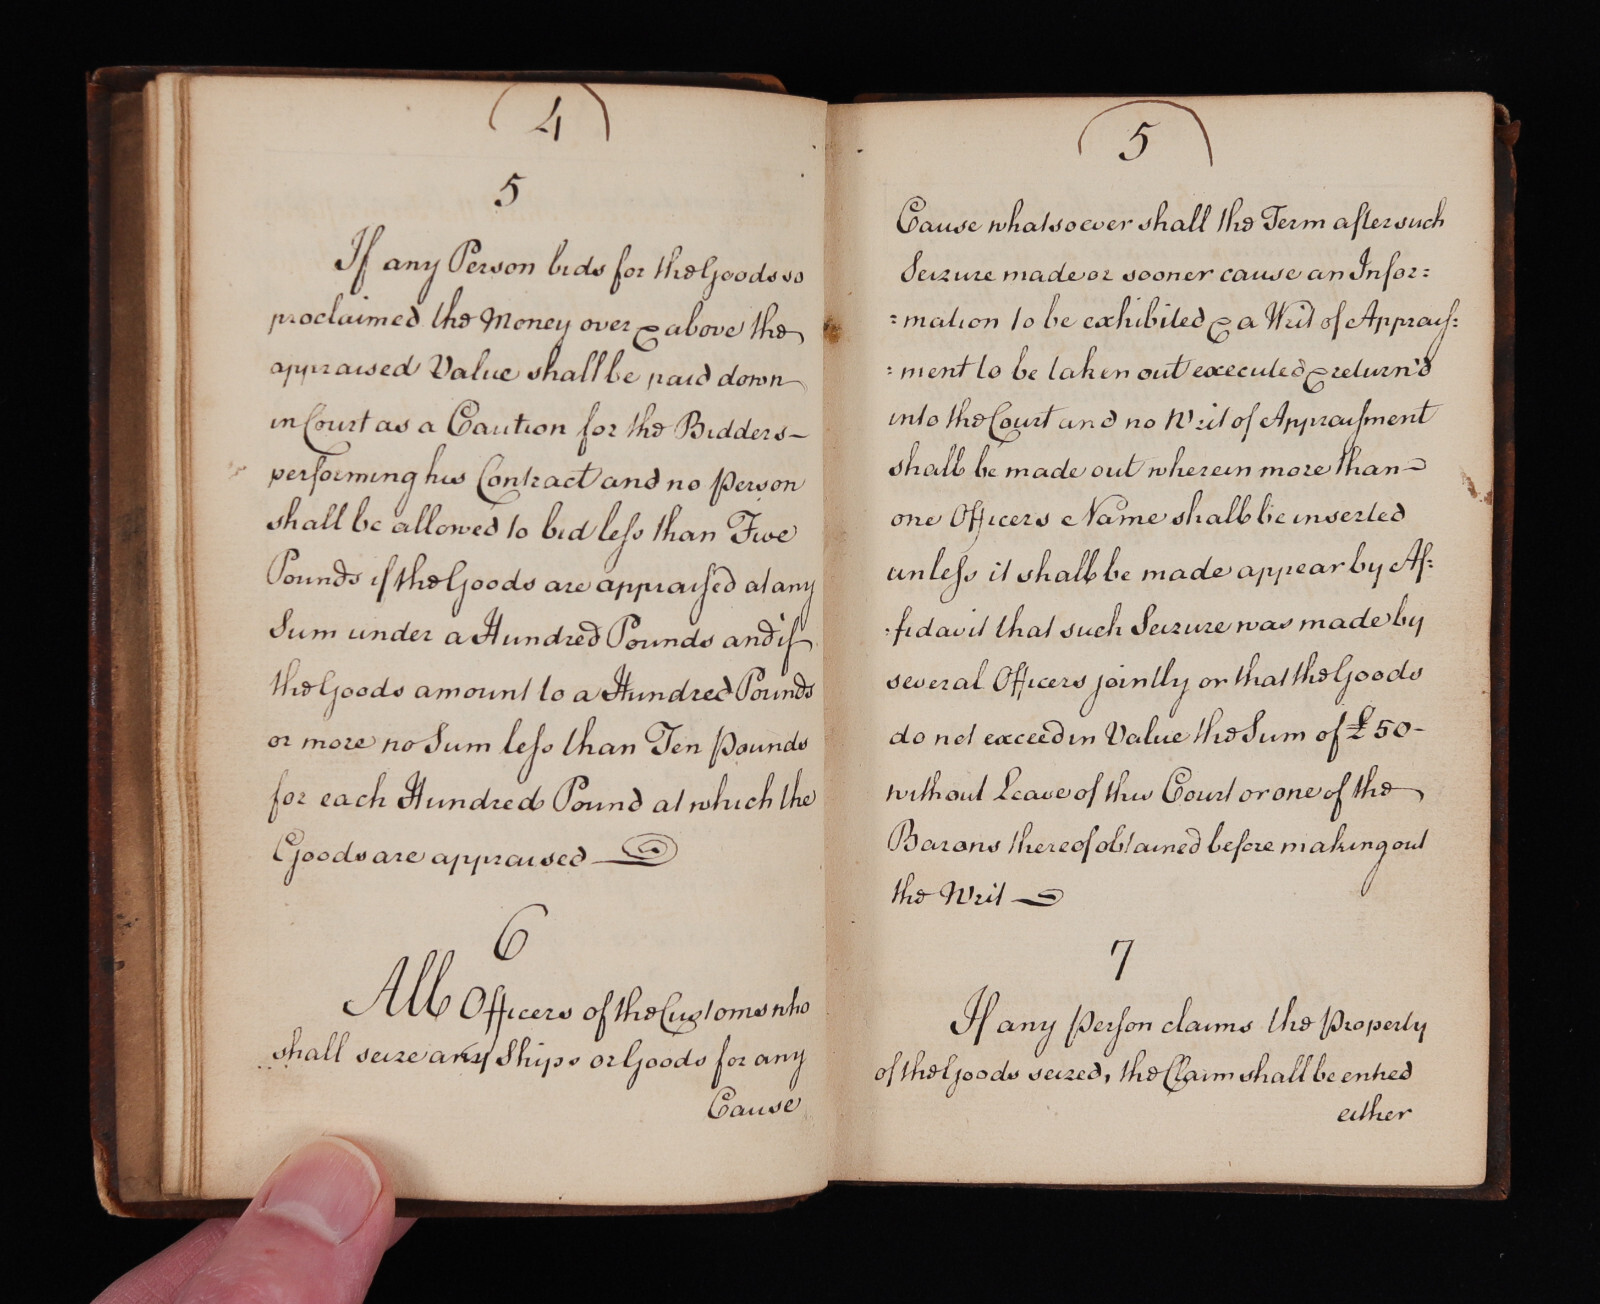 4
5
If any Person bids for the Goods so
proclaimed the Money over & above the
appraised Value shall be paid down
in Court as a Caution for the Bidders –
performing his Contract and no person
shall be allowed to bid leſs than Five
Pounds if the Goods are appraiſed at any
Sum under a Hundred Pounds and if
the Goods amount to a Hundred Pounds
or more no Sum leſs than Ten pounds
for each Hundred Pound at which the
Goods are appraised
6
All Officers of the Customs who
shall seize any Ships or Goods for any
Cause
5
Cause whatsoever shall the Term after such
Seizure made or sooner cause an Infor=
=mation to be exhibited & a Writ of Appraiſ=
=ment to be taken out executed & return'd
into the Court and no Writ of Appraiſment
shall be made out wherein more than –
one Officers Name shall be inserted
unleſs it shall be made appear by Af=
=fidavit that such Seizure was made by
several Officers jointly or that the Goods
do not exceed in Value the Sum of £50 –
without Leave of this Court or one of the
Barons thereof obtained before making out
the Writ
7
If any perſon claims the property
of the Goods seized, the Claim shall be entred
either